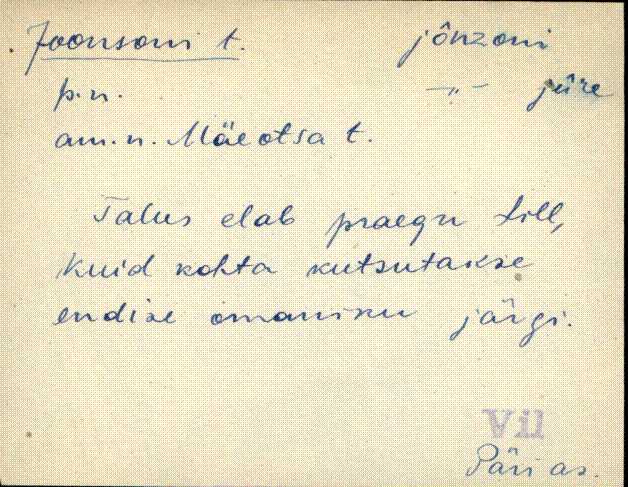 Joonsoni t. jônzoni
p.n. -„- jüre
am.n. Mäeotsa t.
Talus elab praegu Lill,
kuid kohta kutsutakse
endise omaniku järgi.
Vil
Päri as.